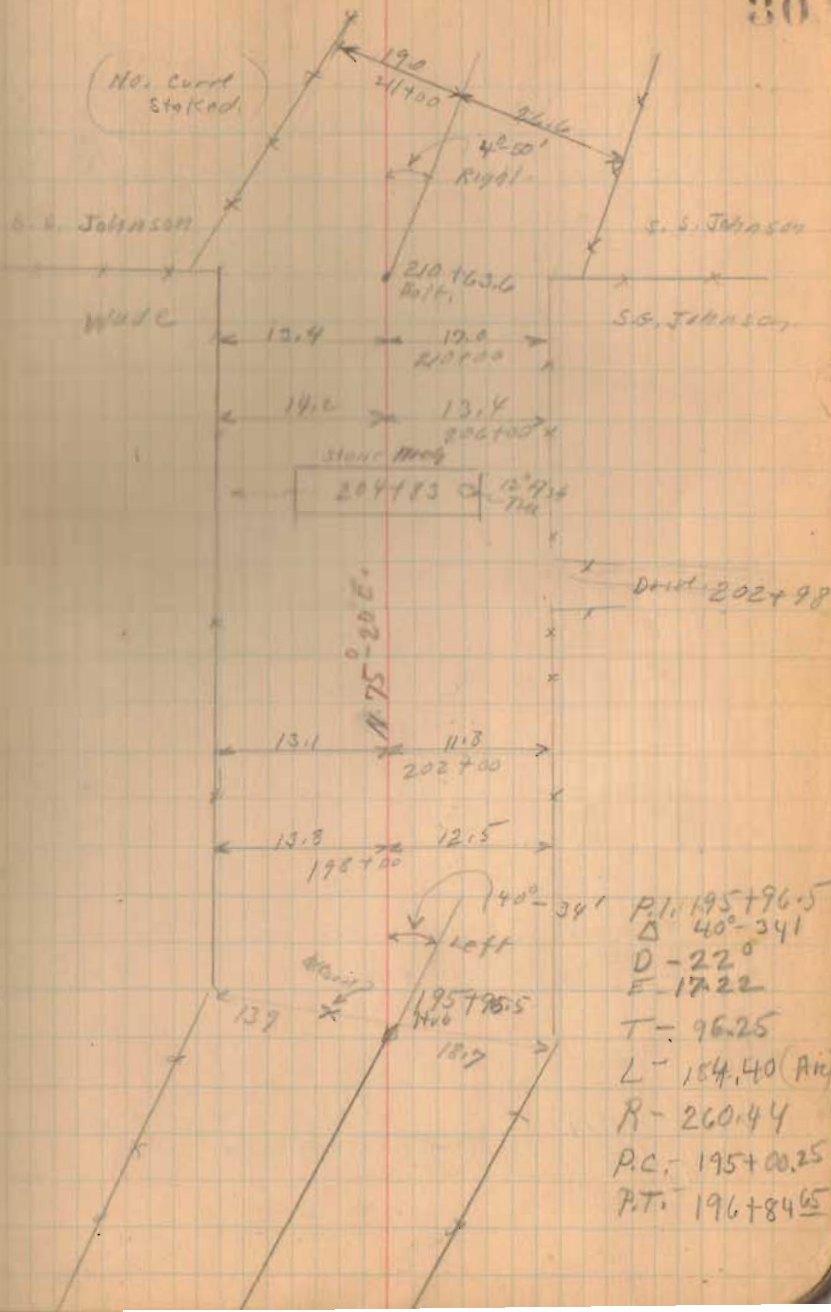 30
(No. Curve
Staked.)
19.0
21+00
26.6
4°-50'
Right
S. S. Johnson
S. S. Johnson
210+63.6
Bolt.
Wade
S.S. Johnson
13.4
13.0
210+00
14.2
13.4
206+00
Stone Arch
204+83
Drive 202+98
N. 75°-20' E.
13.1
11.8
202+00
13.8
12.5
198+00
40°-34'
Left
195+96.5
Hub
13.9
18.7
P.I. 195+96.5
Δ 40°-34'
D - 22°
E - 17.22
T - 96.25
L - 184.40 (Arc
R - 260.44
P.C. - 195+00.25
P.T. - 196+84.65